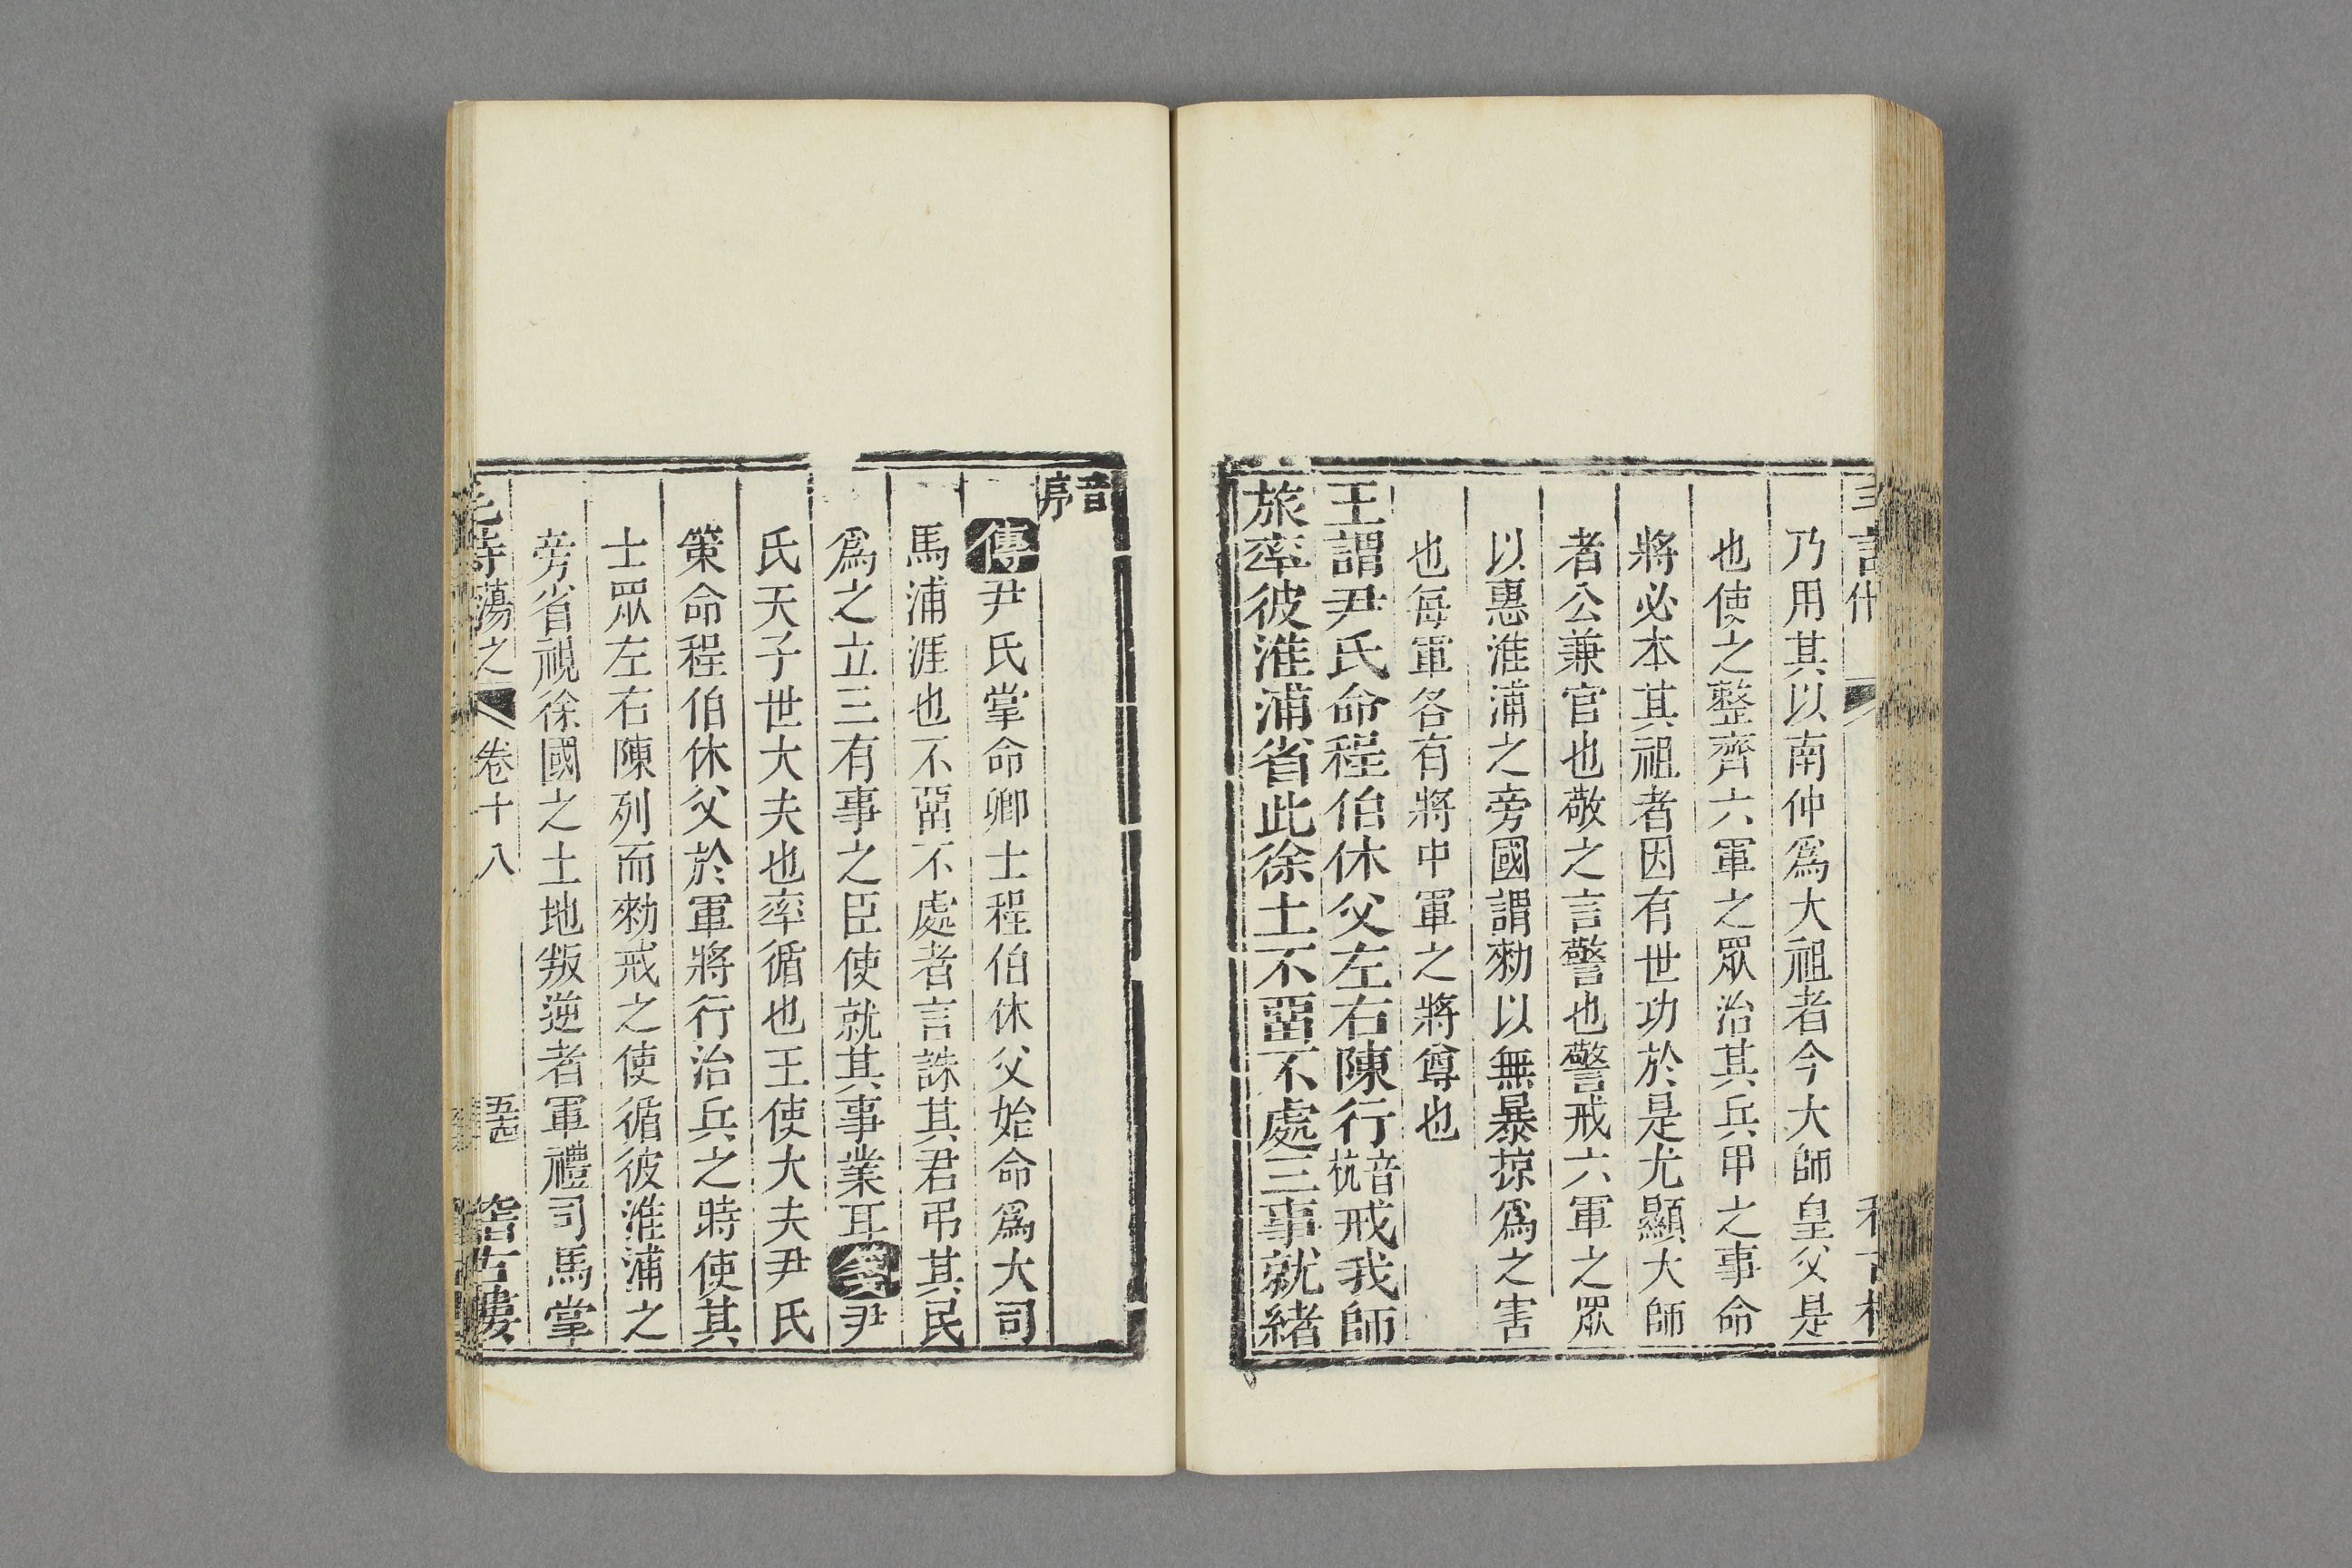 乃用其以南仲爲大祖者今大師皇父是
也使之整齊六軍之眾治其兵甲之事命
將必本其祖者因有世功於是尤顯大師
者公兼官也敬之言警也警戒六軍之眾
以惠淮浦之旁國謂勑以無暴掠爲之害
也每軍各有將中軍之將尊也
王謂尹氏命程伯休父左右陳行音杭戒我師
旅率彼淮浦省此徐土不畱不處三事就緒
音序
傳尹氏掌命卿士程伯休父始命爲大司
馬浦涯也不畱不處者言誅其君弔其民
爲之立三有事之臣使就其事業耳箋尹
氏天子世大夫也率循也王使大夫尹氏
策命程伯休父於軍將行治兵之時使其
士眾左右陳列而勑戒之使循彼淮浦之
旁省視徐國之土地叛逆者軍禮司馬掌
詩蕩之 卷十八 稽古樓